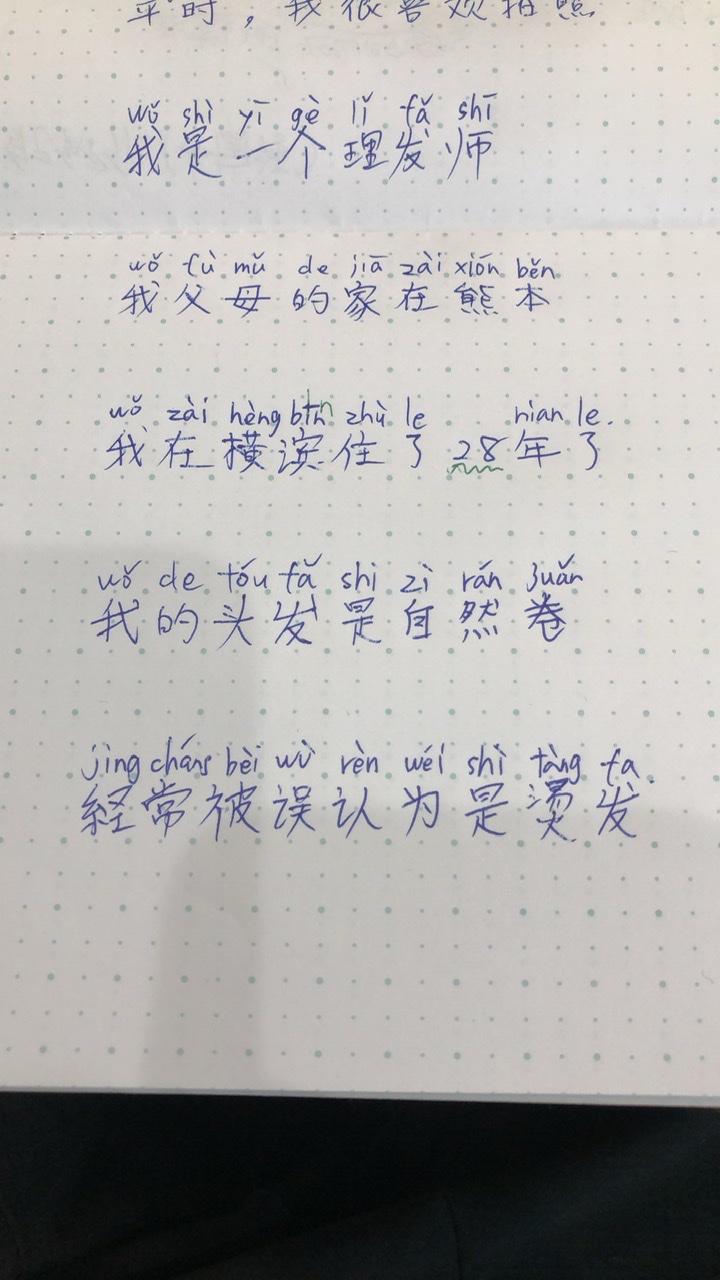 平时，我很喜欢拍照
wǒ shì yī gè lǐ fǎ shī
我是一个理发师
wǒ fù mǔ de jiā zài xión běn
我父母的家在熊本
wǒ zài hèng bīn zhù le nian le.
我在横滨住了28年了
wǒ de tóu fǎ shì zì rán juǎn
我的头发是自然卷
jīng cháng bèi wù rèn wéi shì tàng fa.
経常被误认为是烫发